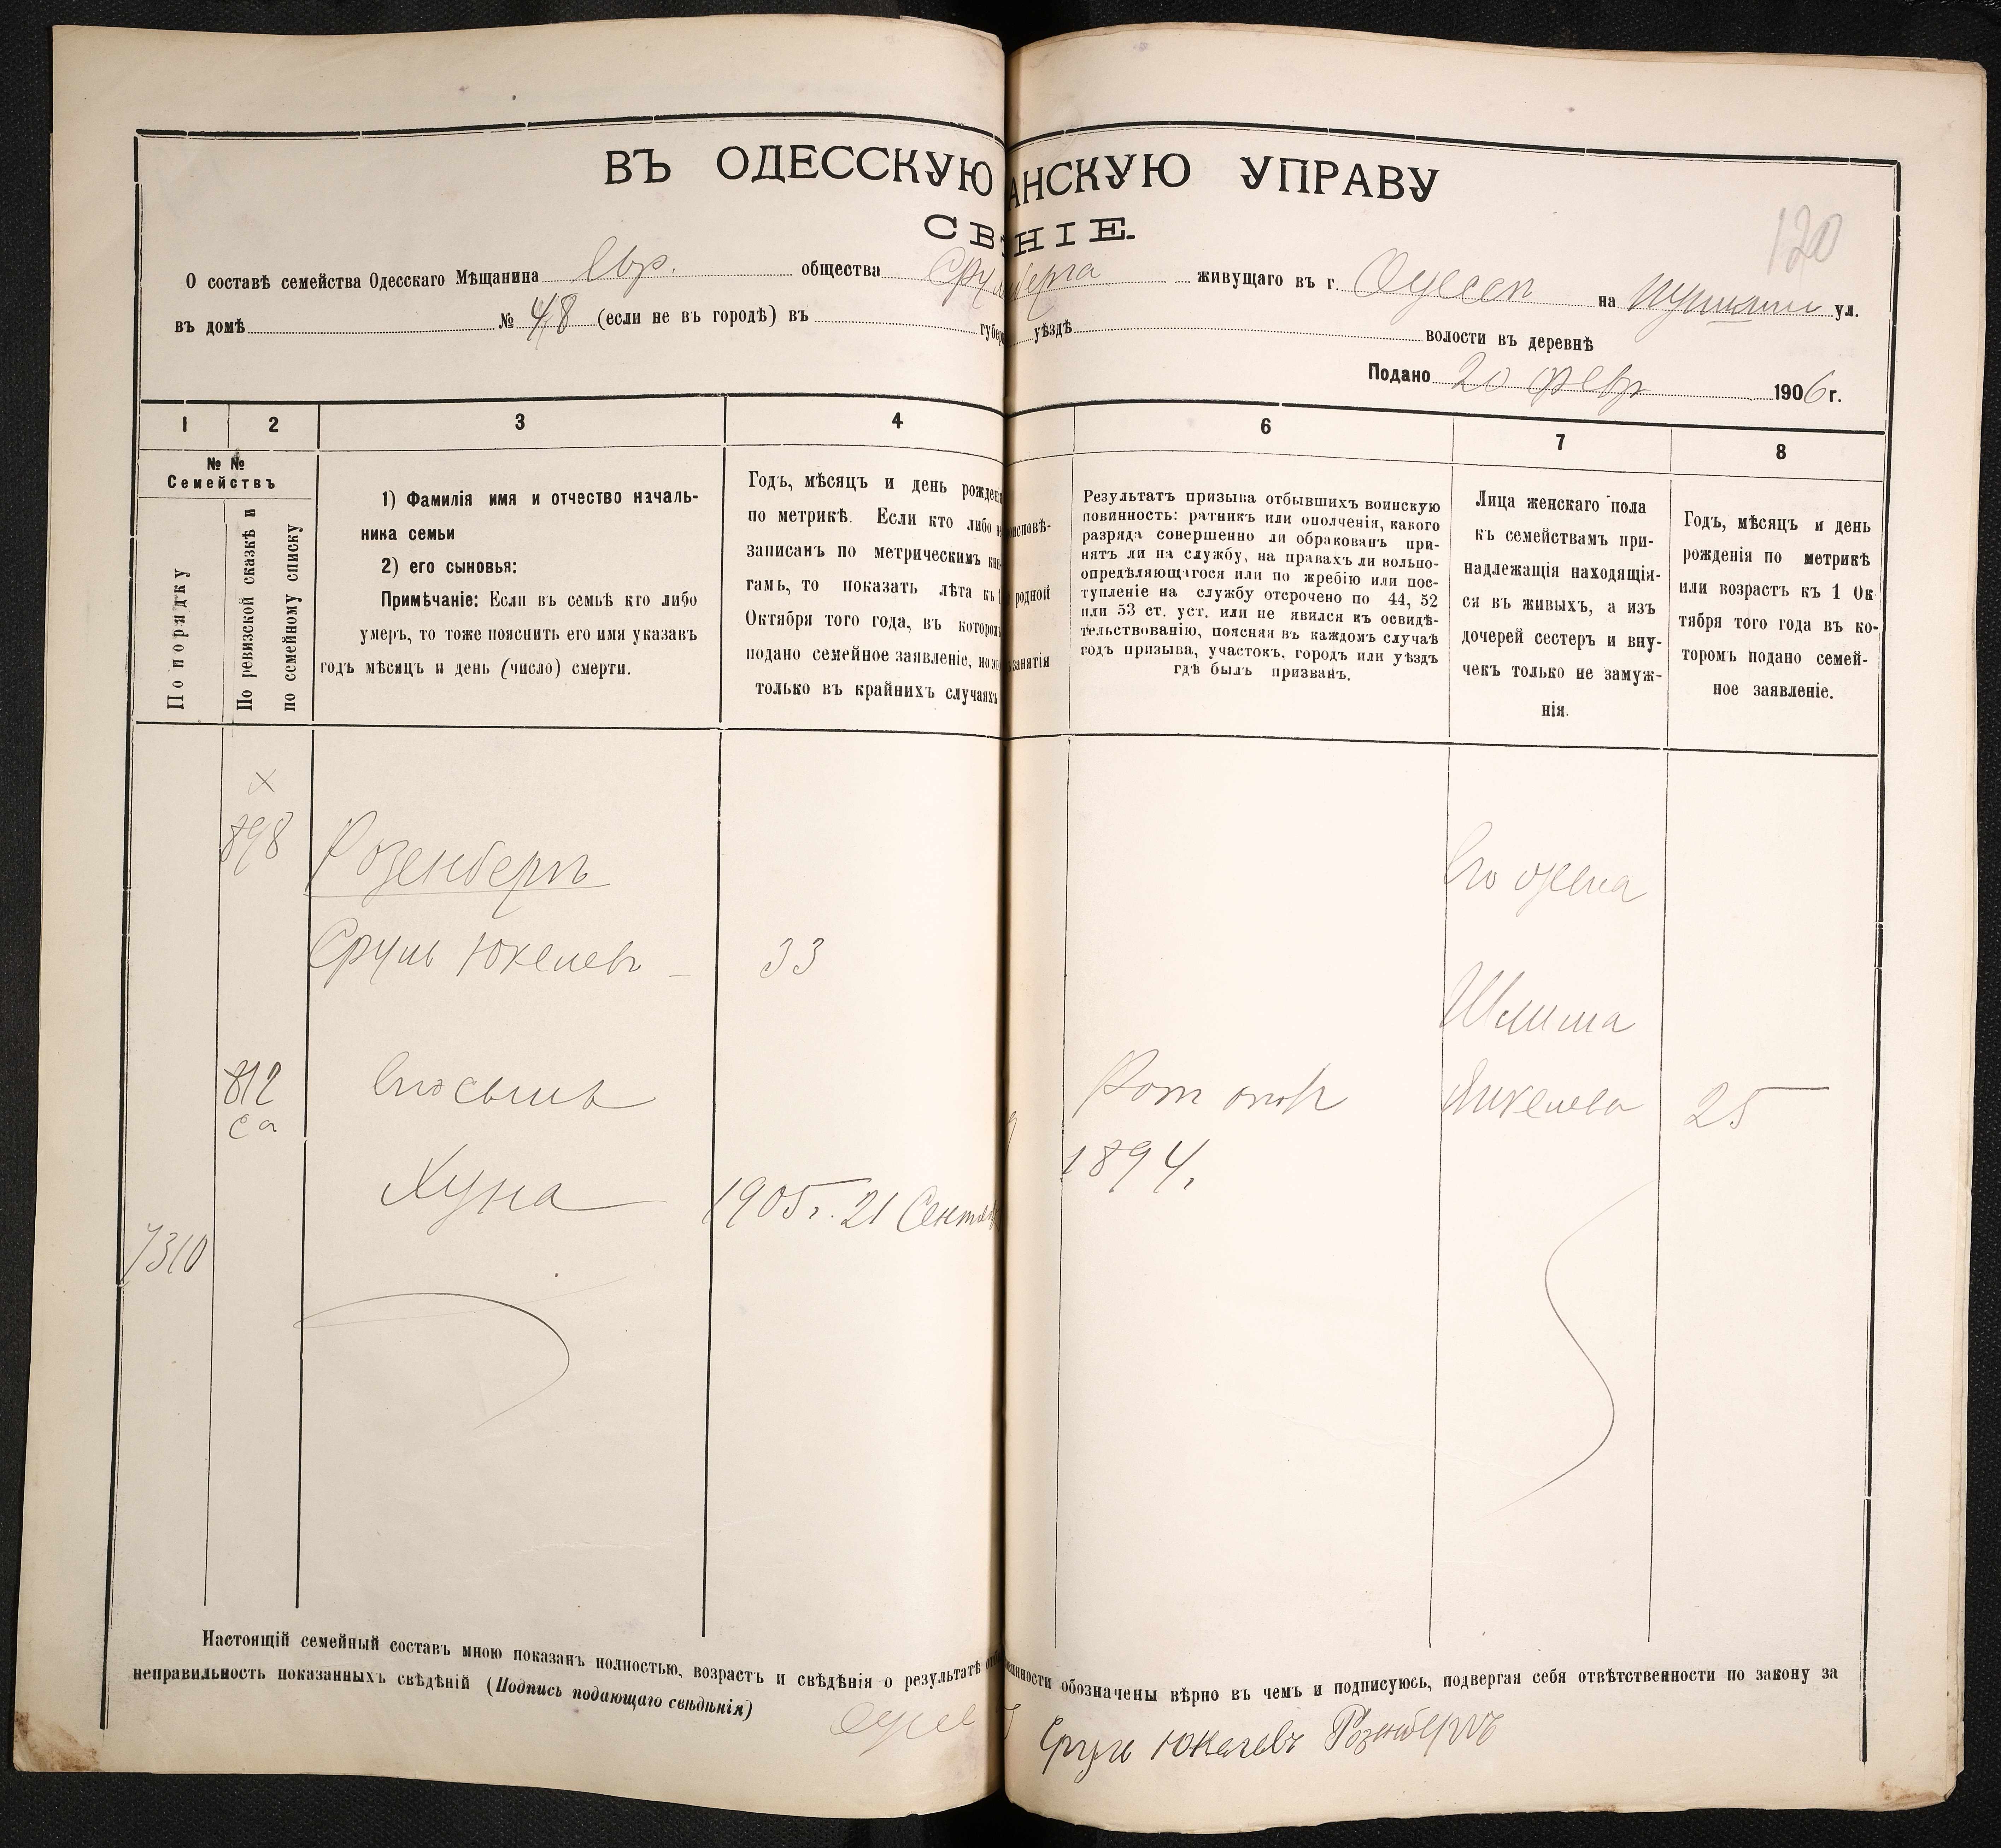 ВЪ ОДЕССКУЮ АНСКУЮ УПРАВУ
СВ НІЕ.
120
О составѣ семейства Одесскаго Мѣщанина Евр. общества живущаго въ г. Одессѣ на ул.
въ домѣ № 48 (если не въ городѣ) въ губер уѣздѣ волости въ деревнѣ
Подано 20 февр 1906 г.
1 2 3 4 6 7 8
№ №
Семействъ
По порядку
По ревизской сказкѣ и
по семейному списку
1) Фамилія имя и отчество началь-
ника семьи
2) его сыновья:
Примѣчаніе: Если въ семьѣ кто либо
умеръ, то тоже пояснить его имя указавъ
годъ мѣсяцъ и день (число) смерти.
Годъ, мѣсяцъ и день рожденія
по метрикѣ. Если кто либо не
записанъ по метрическимъ кни-
гамъ, то показать лѣта къ 1
Октября того года, въ которомъ
подано семейное заявленіе, но это
только въ крайнихъ случаяхъ
исповѣ-
родной
занятія
Результатъ призыва отбывшихъ воинскую
повинность: ратникъ или ополченія, какого
разряда совершенно ли обракованъ при-
нятъ ли на службу, на правахъ ли вольно-
опредѣляющагося или по жребію или пос-
тупленіе на службу отсрочено по 44, 52
или 53 ст. уст. или не явился къ освидѣ-
тельствованію, поясняя въ каждомъ случаѣ
годъ призыва, участокъ, городъ или уѣздъ
гдѣ былъ призванъ.
Лица женскаго пола
къ семействамъ при-
надлежащія находящія-
ся въ живыхъ, а изъ
дочерей сестеръ и вну-
чекъ только не замуж-
нія.
Годъ, мѣсяцъ и день
рожденія по метрикѣ
или возрастъ къ 1 Ок
тября того года въ ко-
торомъ подано семей-
ное заявленіе.
х
898
Розенбергъ
Его жена
Сруль Юкелевъ 33
812
са
Его сынъ
Рат опол
Янкелева 25
1894.
Хуна 1905 г. 21 Сентяб
7310
Настоящій семейный составъ мною показанъ полностью, возрастъ и свѣдѣнія о результатѣ обозначены вѣрно въ чемъ и подписуюсь, подвергая себя отвѣтственности по закону за
неправильность показанныхъ свѣдѣній (Подпись подающаго свѣдѣнія)
Сруль Юкелевъ Розенбергъ